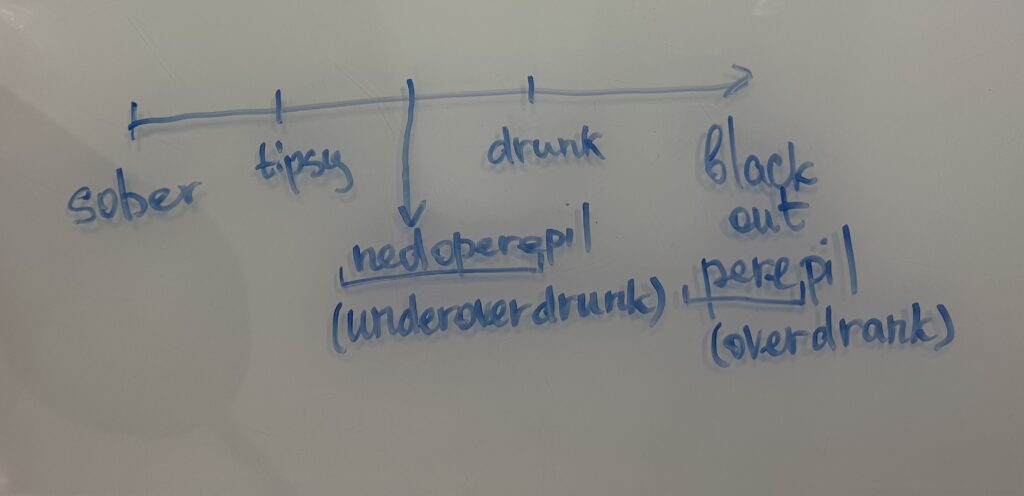 sober
tipsy
drunk
black
out
nedoperepil
(underoverdrunk)
perepil
(overdrank)